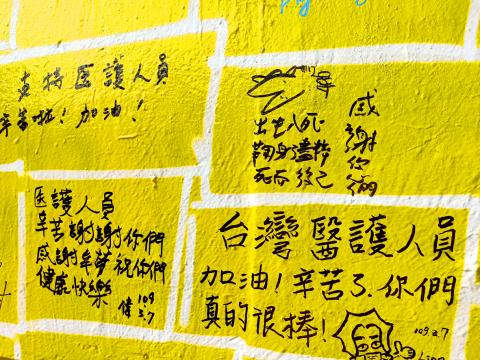 支持医護人員
辛苦啦！加油！
出生入死
鞠身盡粹
死而後己
感
謝
你
們
医護人員
辛苦謝謝你們
感謝 祝你們
健康快樂
偉 109
3.7
台灣醫護人員
加油！辛苦了.你們
真的很棒！
109.2.7